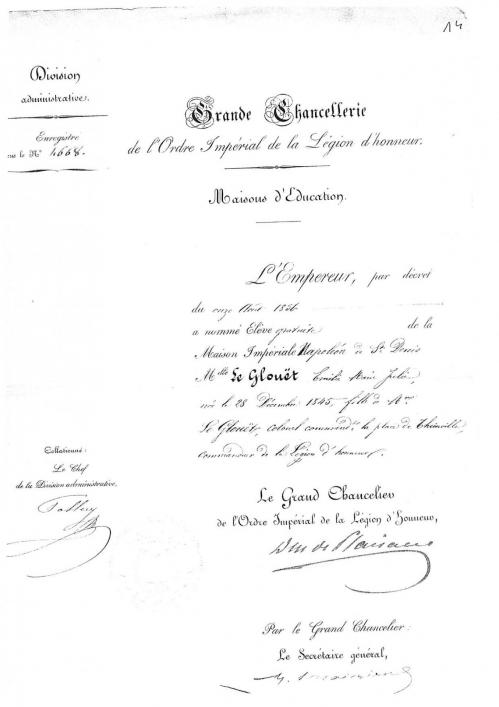 14
Division
administrative.
Enregistré
sous le Nº 4668.
Grande Chancellerie
de l'Ordre Impérial de la Légion d'honneur.
Maisons d'Éducation.
L'Empereur, par décret
du onze Août 1856
a nommé Elève gratuite de la
Maison Impériale Napoléon de St Denis
Melle Le Glouët Emilie Marie Julie,
née le 28 Décembre 1845, fille de Mr
Le Glouët, colonel commandt la place de Thionville,
commandeur de la Légion d'honneur.
Collationné:
Le Chef
de la Division administrative,
Le Grand Chancelier
de l'Ordre Impérial de la Légion d'Honneur,
Duc de Plaisance
Par le Grand Chancelier:
Le Secrétaire général,